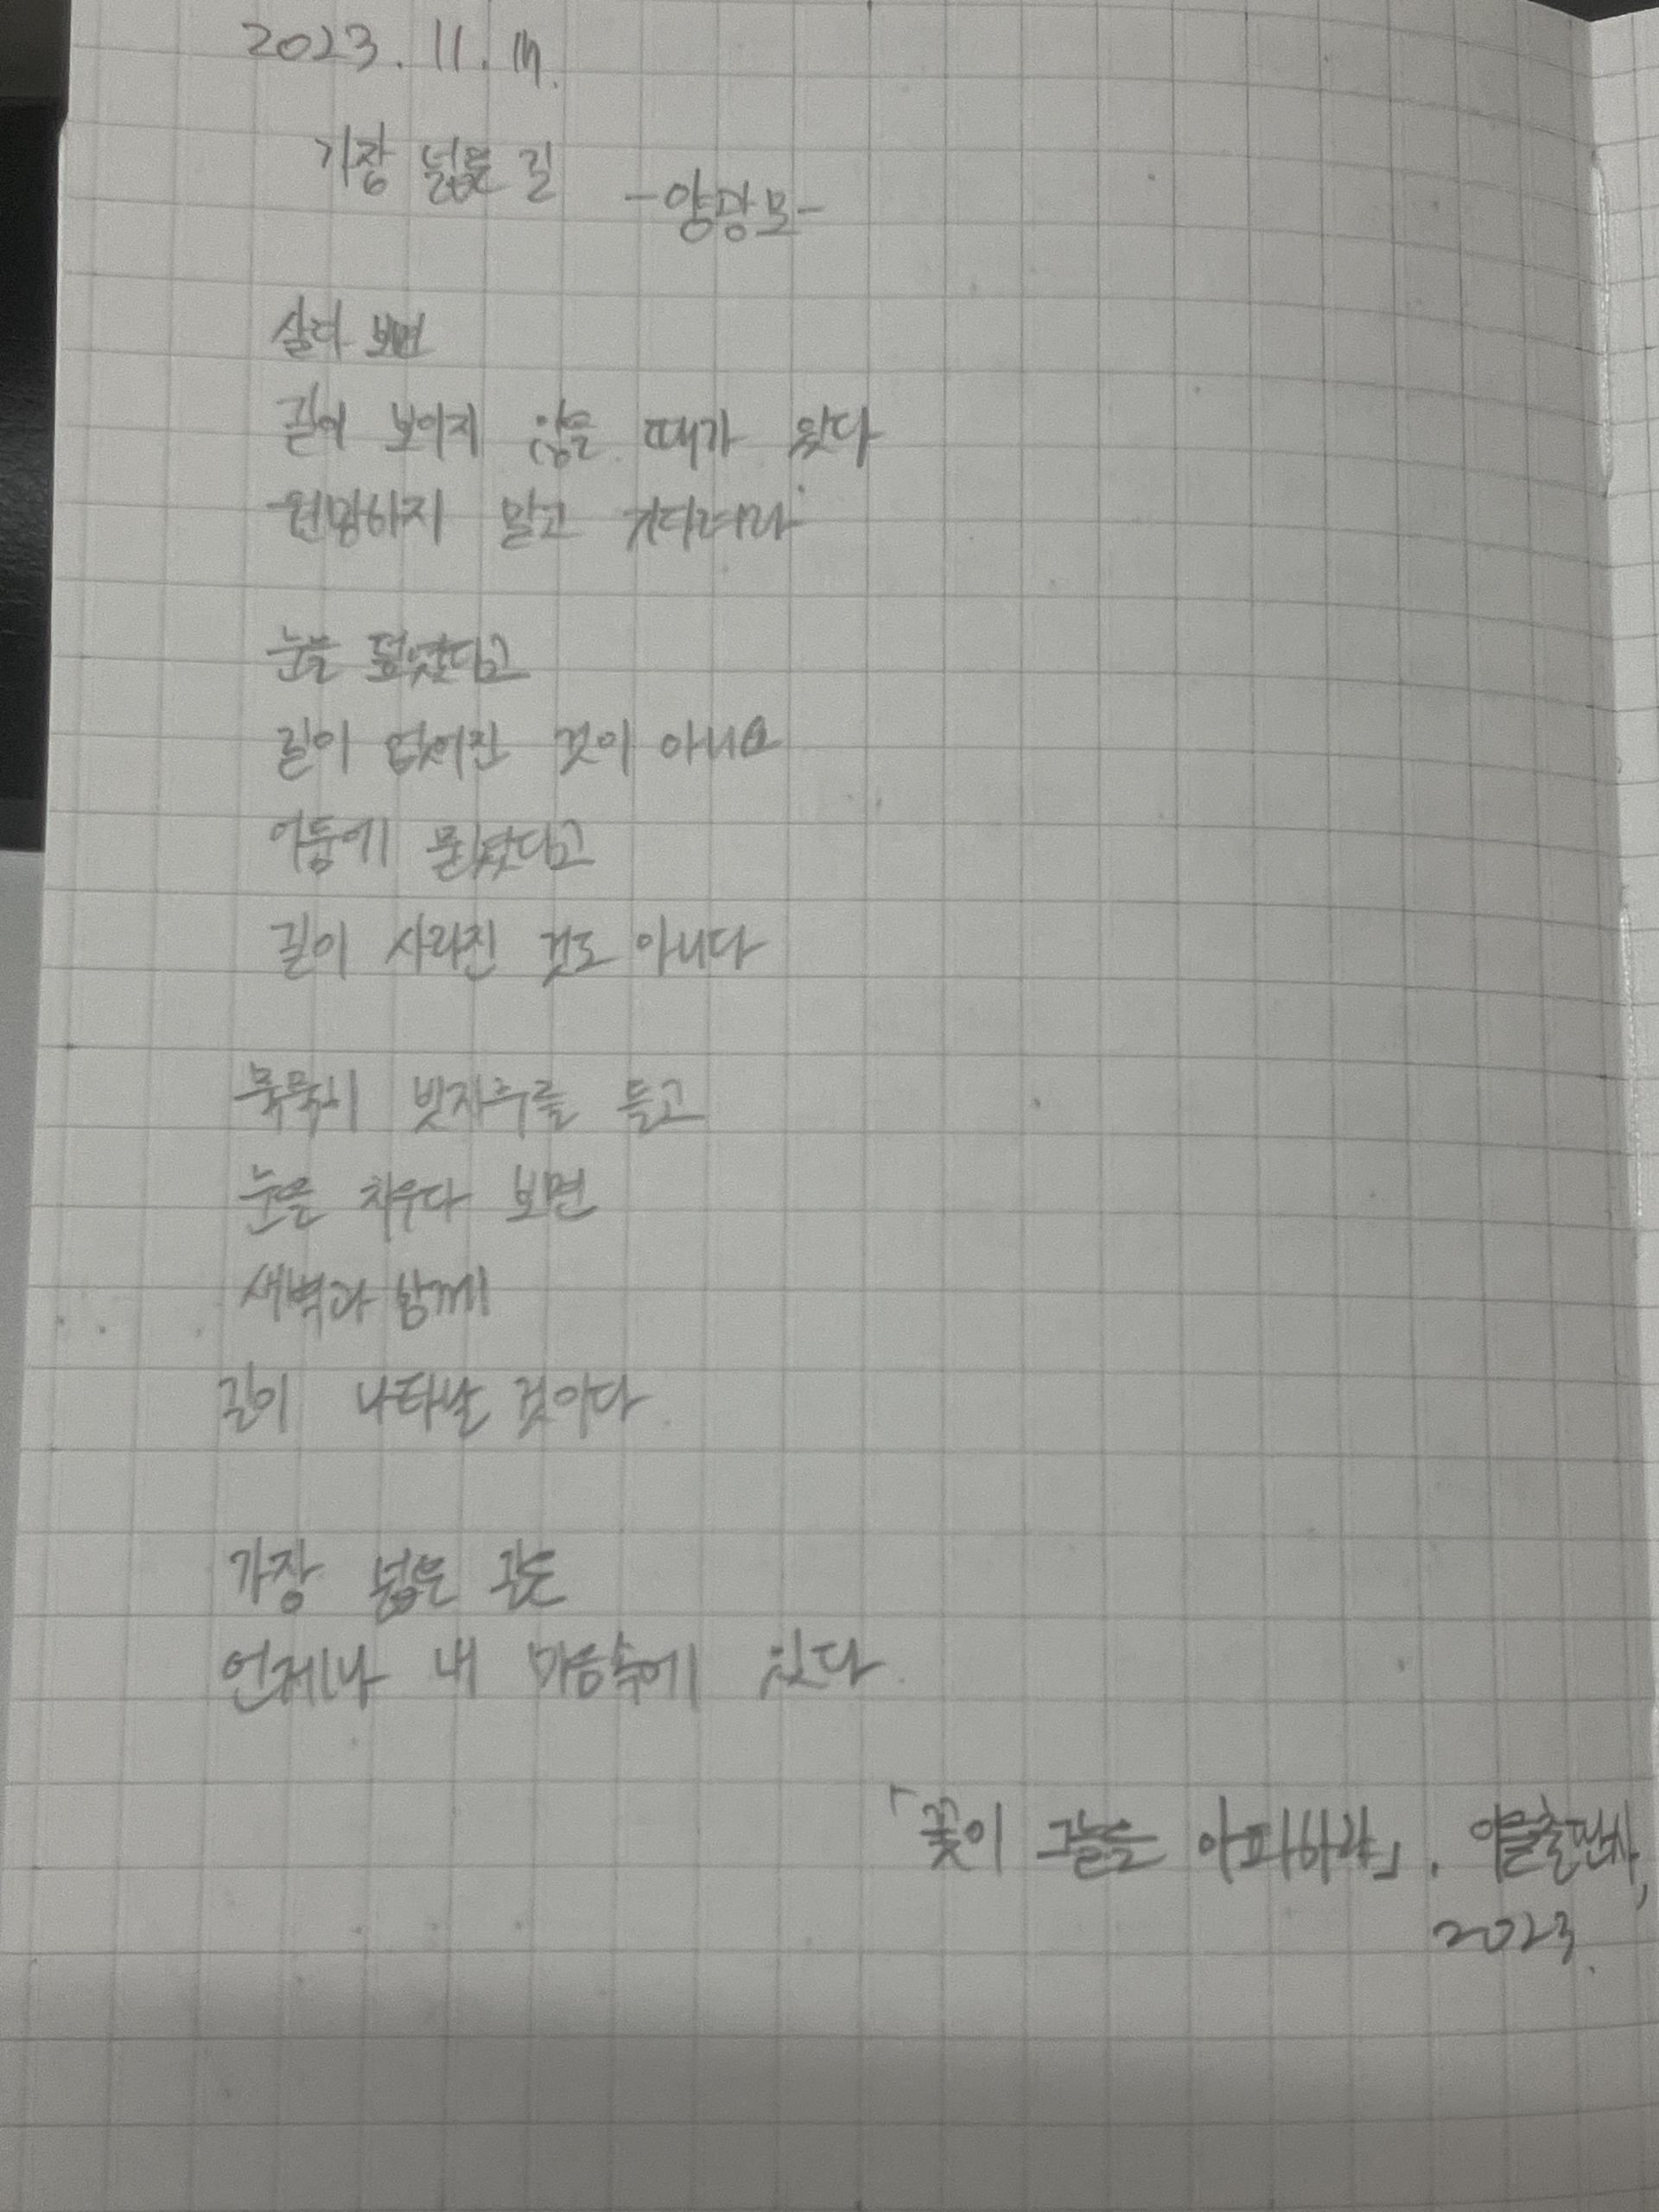 2023. 11. 17.
가장 넓은 길
-양광모-
살다 보면
길이 보이지 않을 때가 있다
원망하지 말고 기다려라
눈을 덮었다고
길이 없어진 것이 아니요
어둠에 묻혔다고
길이 사라진 것도 아니다
묵묵히 빗자루를 들고
눈을 치우다 보면
새벽과 함께
길이 나타날 것이다
가장 넓은 길은
언제나 내 마음속에 있다
「꽃이 그늘을 아파하랴」.
2023.